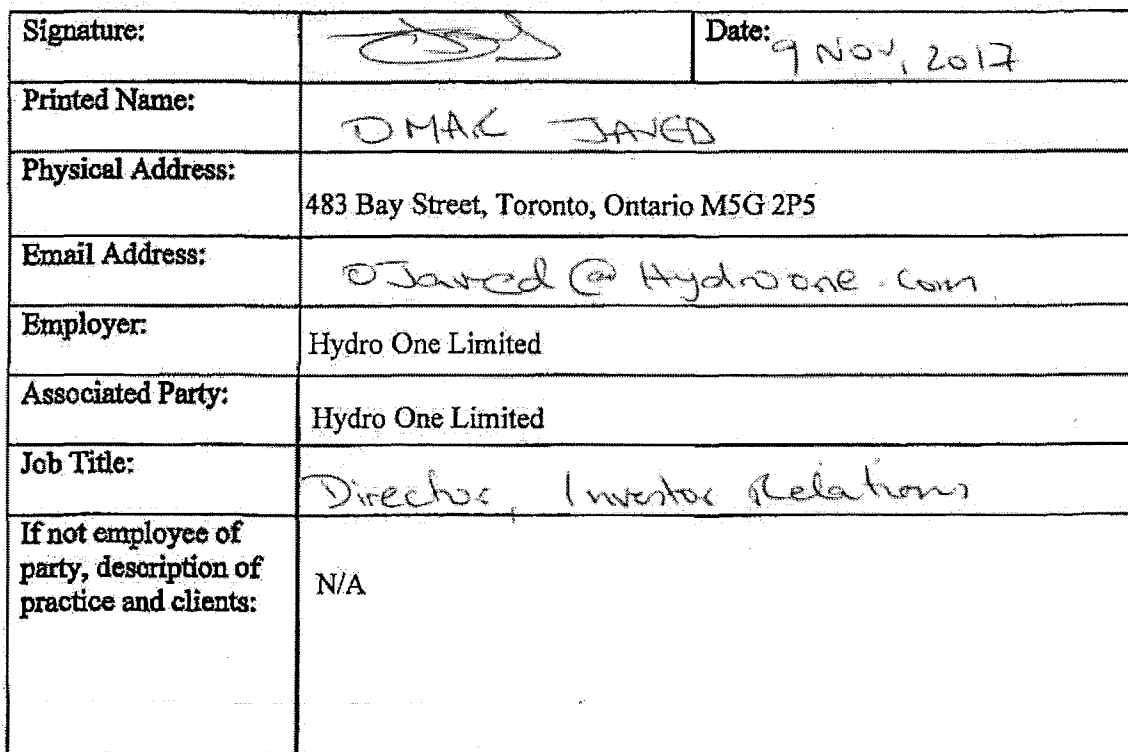 Signature: Date: 9 Nov, 2017
Printed Name:
OMAR JAVED
Physical Address:
483 Bay Street, Toronto, Ontario M5G 2P5
Email Address:
OJaved@Hydroone.com
Employer:
Hydro One Limited
Associated Party:
Hydro One Limited
Job Title:
Director, Investor Relations
If not employee of
party, description of
practice and clients:
N/A